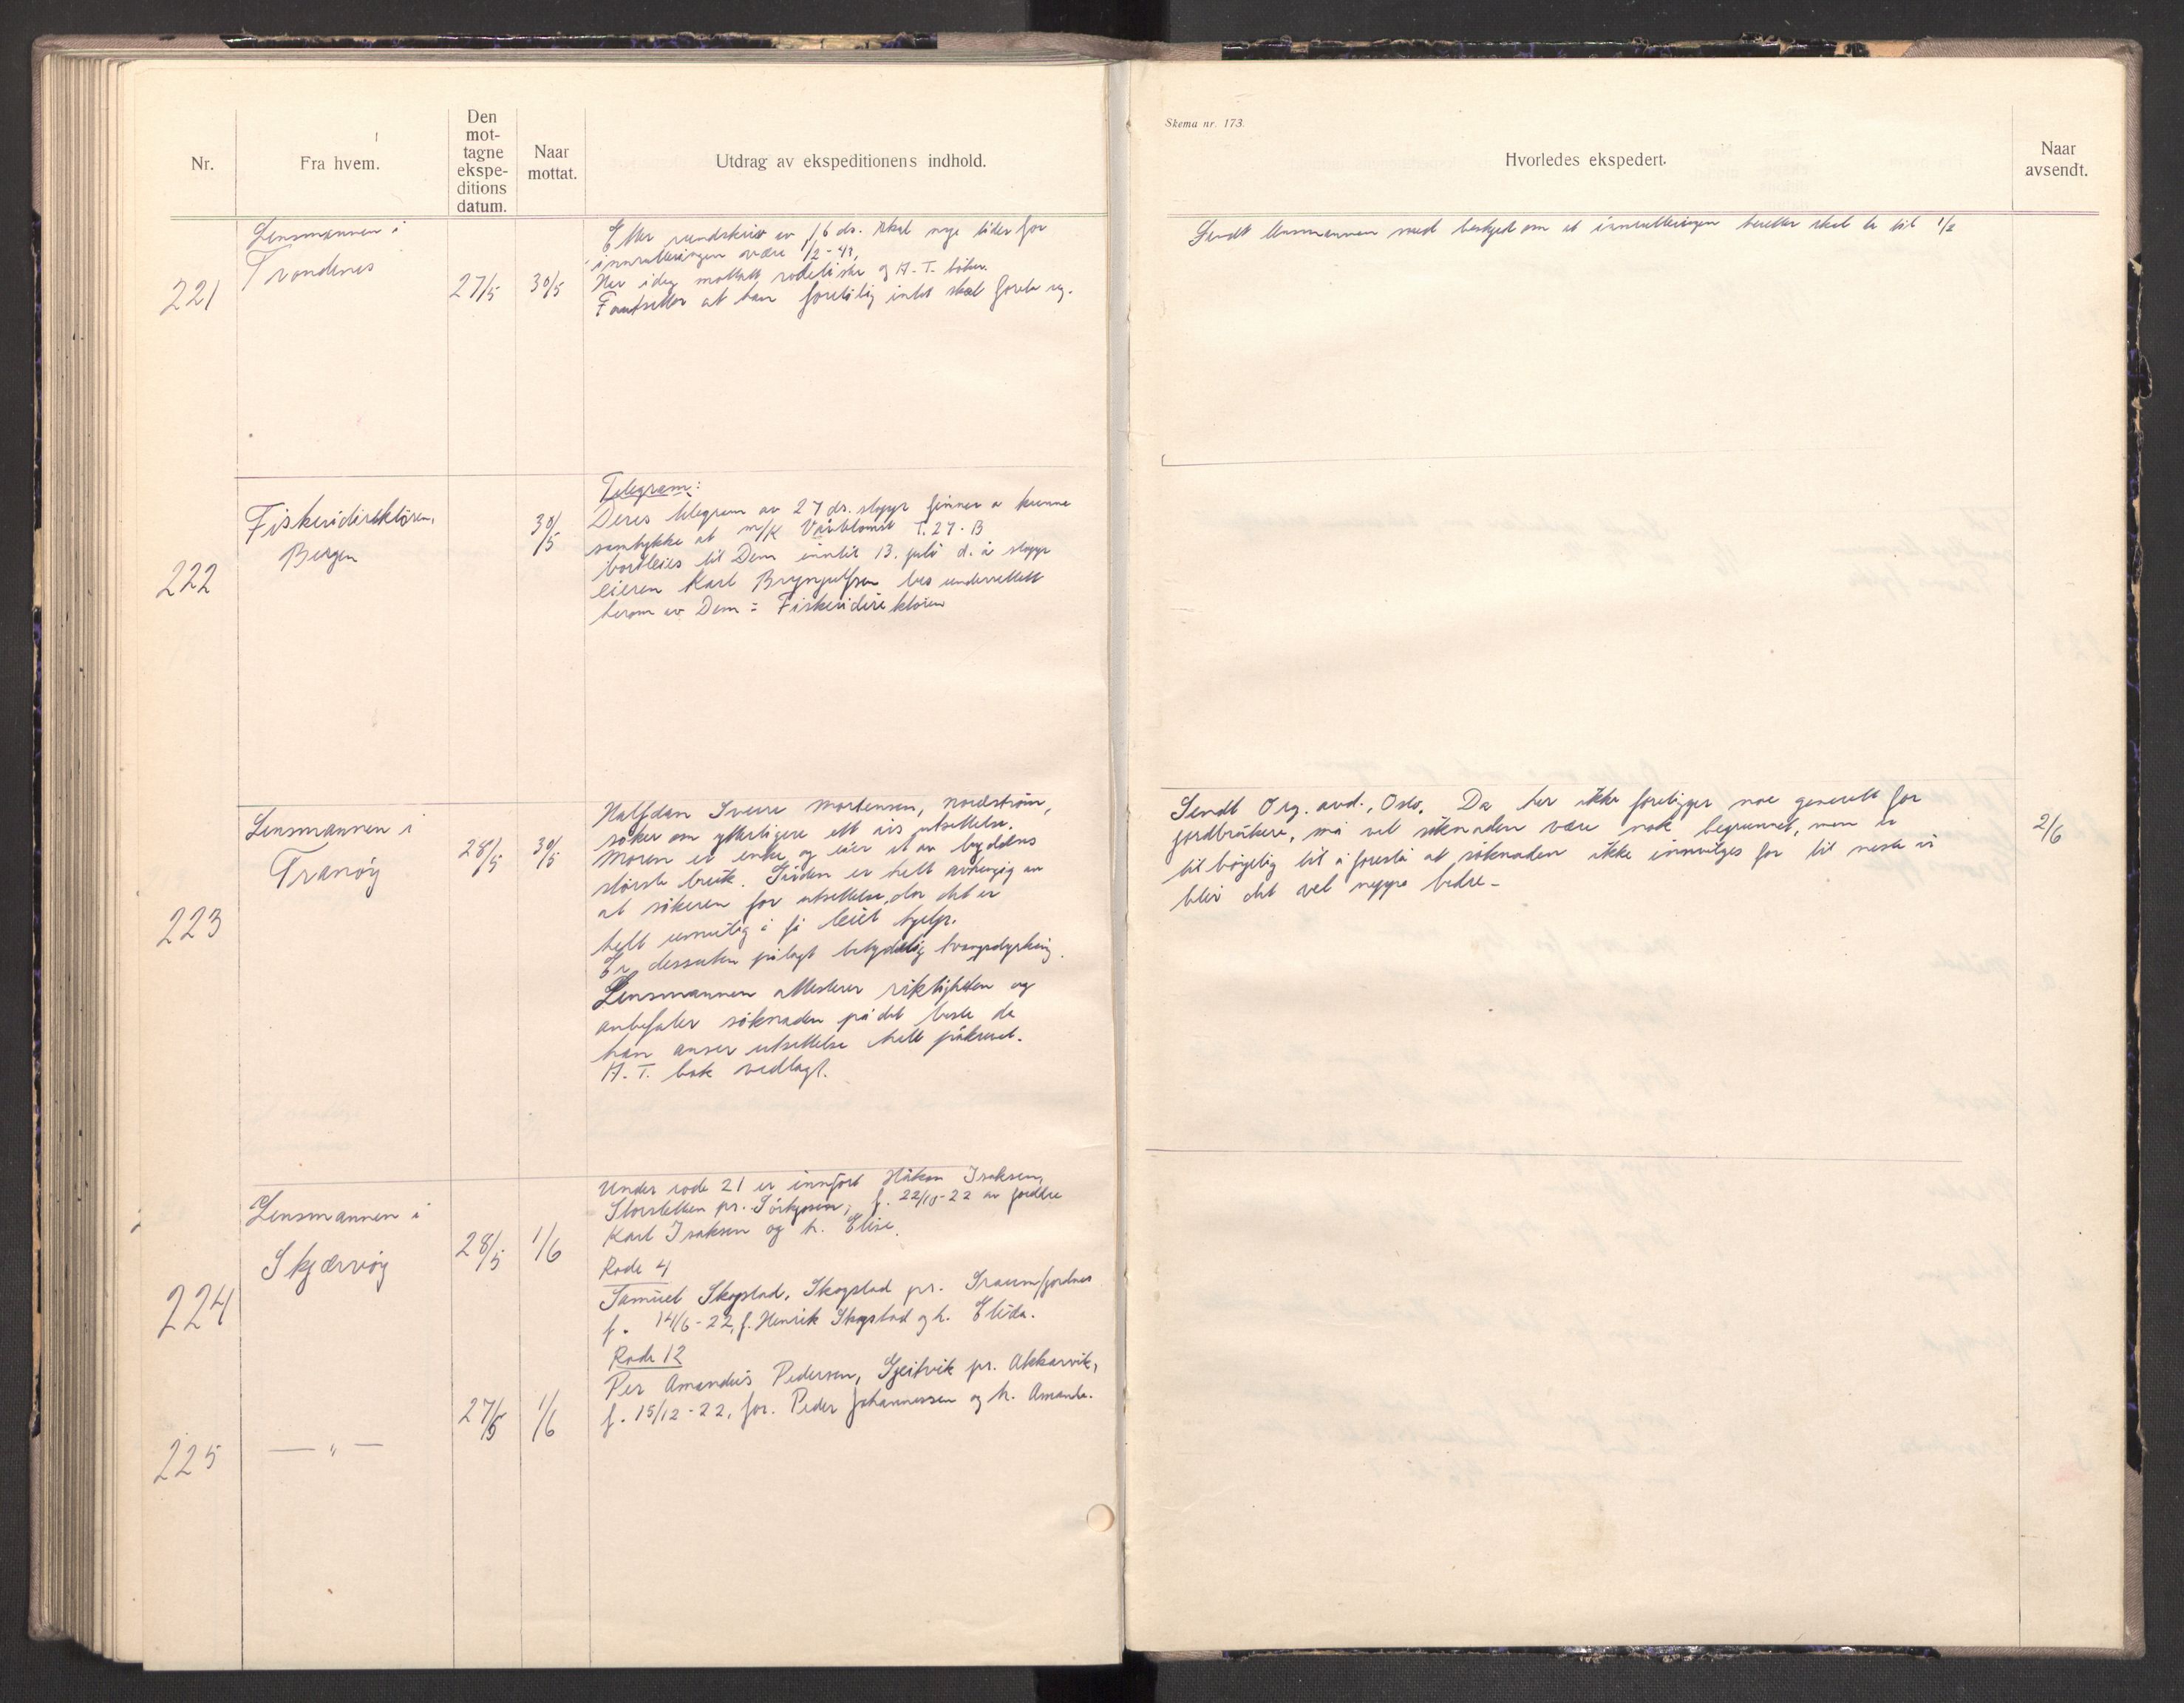 Nr.
Fra hvem.
Den
mot-
tagne
ekspe-
ditions
datum.
Naar
mottat.
Utdrag av ekspeditionens indhold.
Skema nr. 173.
Hvorledes ekspedert.
Naar
avsendt.
221
Lensmannen i
Trondenes
27/5
30/5
Efter rundskriv av 16 ds. skal nye tider for
innrulleringen være 1/2-43,
Har idag mottatt rodeliste og A.T. bøker.
Forutsetter at han foreløbig intet skal foreta sig.
Sendt lensmannen med beskjed om at innrulleringen heretter skal ta til 1/2
222
Fiskeridirektören,
Bergen
30/5
Telegram:
Deres telegram av 27 ds. stopp finner a kunne
samtykke at m/k Vårblomst T.27.B
bortleies til Dem inntil 13. juli d. å stopp
eieren Karl Brynjulfsen bes underrettett
herom av Dem = Fiskeridirektören
223
Lensmannen i
Tranöy
28/5
30/5
Halfdan Sverre Mortensen, Nordström,
söker om ytterligere ett års utsettelse.
Moren er enke og eier et av bygdens
störste bruk. Gården er helt avhengig av
at sökeren får utsettelse, da det er
helt umulig å få leiet hjelp.
Er dessuten pålagt betydelig tvangsdyrking.
Lensmannen attesterer riktigheten og
anbefaler söknaden på det beste da
han anser utsettelse helt påkrevet.
A.T. bok vedlagt.
Sendt Org. avd., Oslo. Da her ikke foreligger noe generelt for
jordbrukere, må vel söknaden være nok begrunnet, men er
tilböyelig til å foreslå at söknaden ikke innvilges for til neste år
blir det vel neppe bedre-
2/6
224
Lensmannen i
Skjervöy
28/5
1/6
Under rode 21 er innfört Håkon Isaksen,
Storsletten pr. Sörkjosen, f. 22/10-22 av foreldre
Karl Isaksen og h. Elise.
Rode 4
Samuel Skogstad, Skogstad pr. Straumfjordnes
f. 14/6-22, f. Henrik Skogstad og h. Elida.
225
— " —
27/5
1/6
Rode 12
Per Amandus Pedersen, Gjeitvik pr. Akkarvik,
f. 15/12-22, for. Peder Johannessen og h. Amanda.